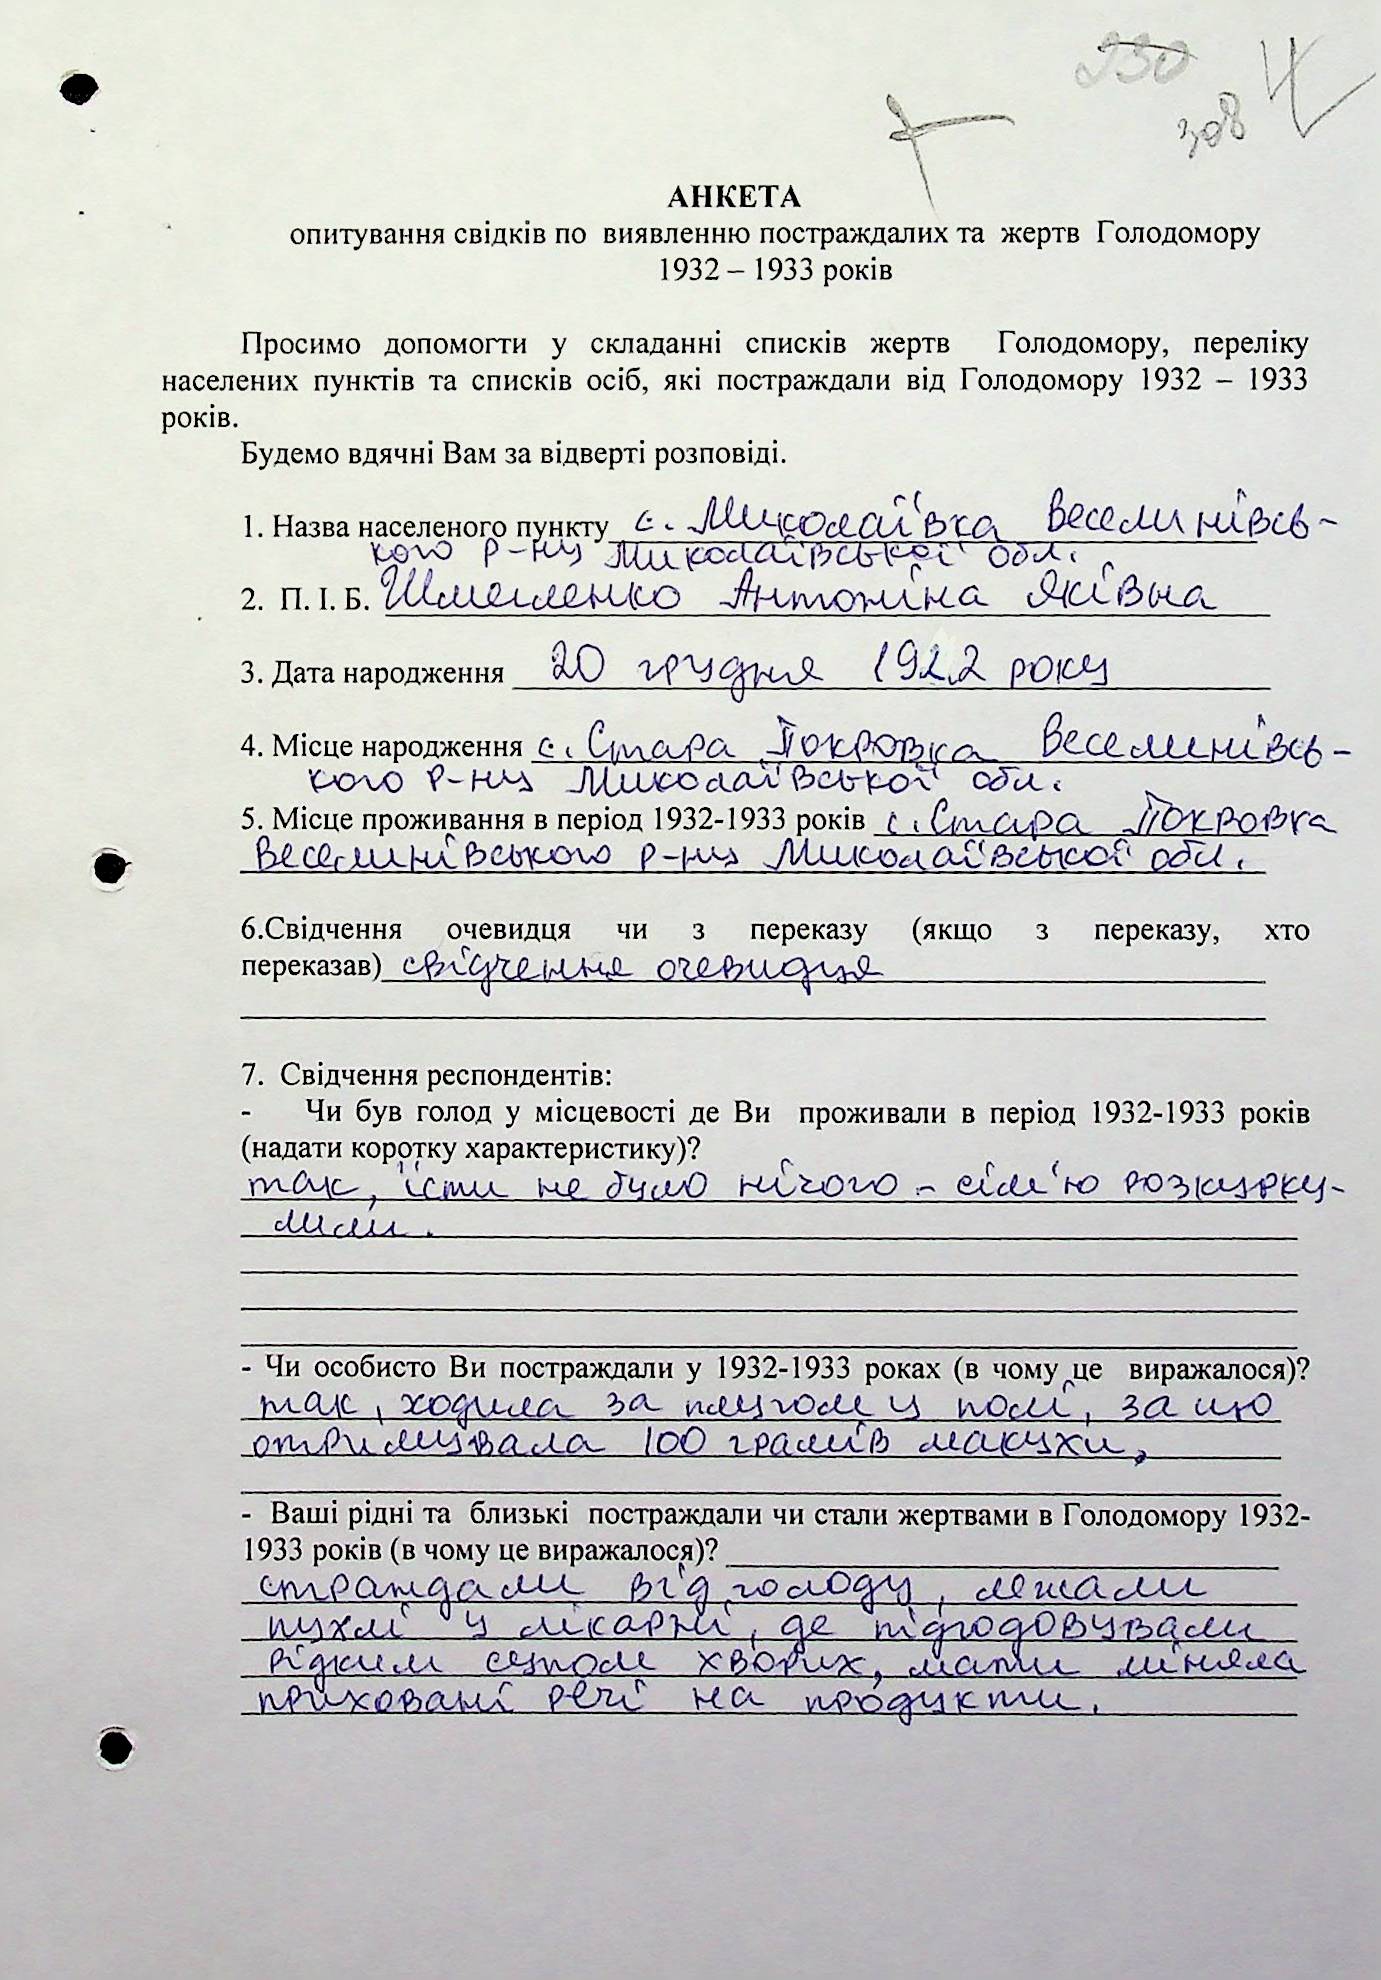 230
308
АНКЕТА
опитування свідків по виявленню постраждалих та жертв Голодомору
1932 – 1933 років
Просимо допомогти у складанні списків жертв Голодомору, переліку
населених пунктів та списків осіб, які постраждали від Голодомору 1932 – 1933
років.
Будемо вдячні Вам за відверті розповіді.
1. Назва населеного пункту с. Миколаївка Веселинівсь-
кого р-ну Миколаївської обл.
2. П. І. Б. Антоніна Яківна
3. Дата народження 20 грудня 1922 року
4. Місце народження с. Стара Покровка Веселинівсь-
кого р-ну Миколаївської обл.
5. Місце проживання в період 1932-1933 років с. Стара Покровка
Веселинівського р-ну Миколаївської обл.
6.Свідчення очевидця чи з переказу (якщо з переказу, хто
переказав) свідчення очевидця
7. Свідчення респондентів:
- Чи був голод у місцевості де Ви проживали в період 1932-1933 років
(надати коротку характеристику)?
так, їсти не було нічого - сім'ю розкурку-
лили.
- Чи особисто Ви постраждали у 1932-1933 роках (в чому це виражалося)?
так, ходила за плугом у полі, за що
отримувала 100 грамів макухи,
- Ваші рідні та близькі постраждали чи стали жертвами в Голодомору 1932-
1933 років (в чому це виражалося)?
страждали від голоду, лежали
пухлі у лікарні, де підгодовували
рідким супом хворих, мати міняла
приховані речі на продукти.